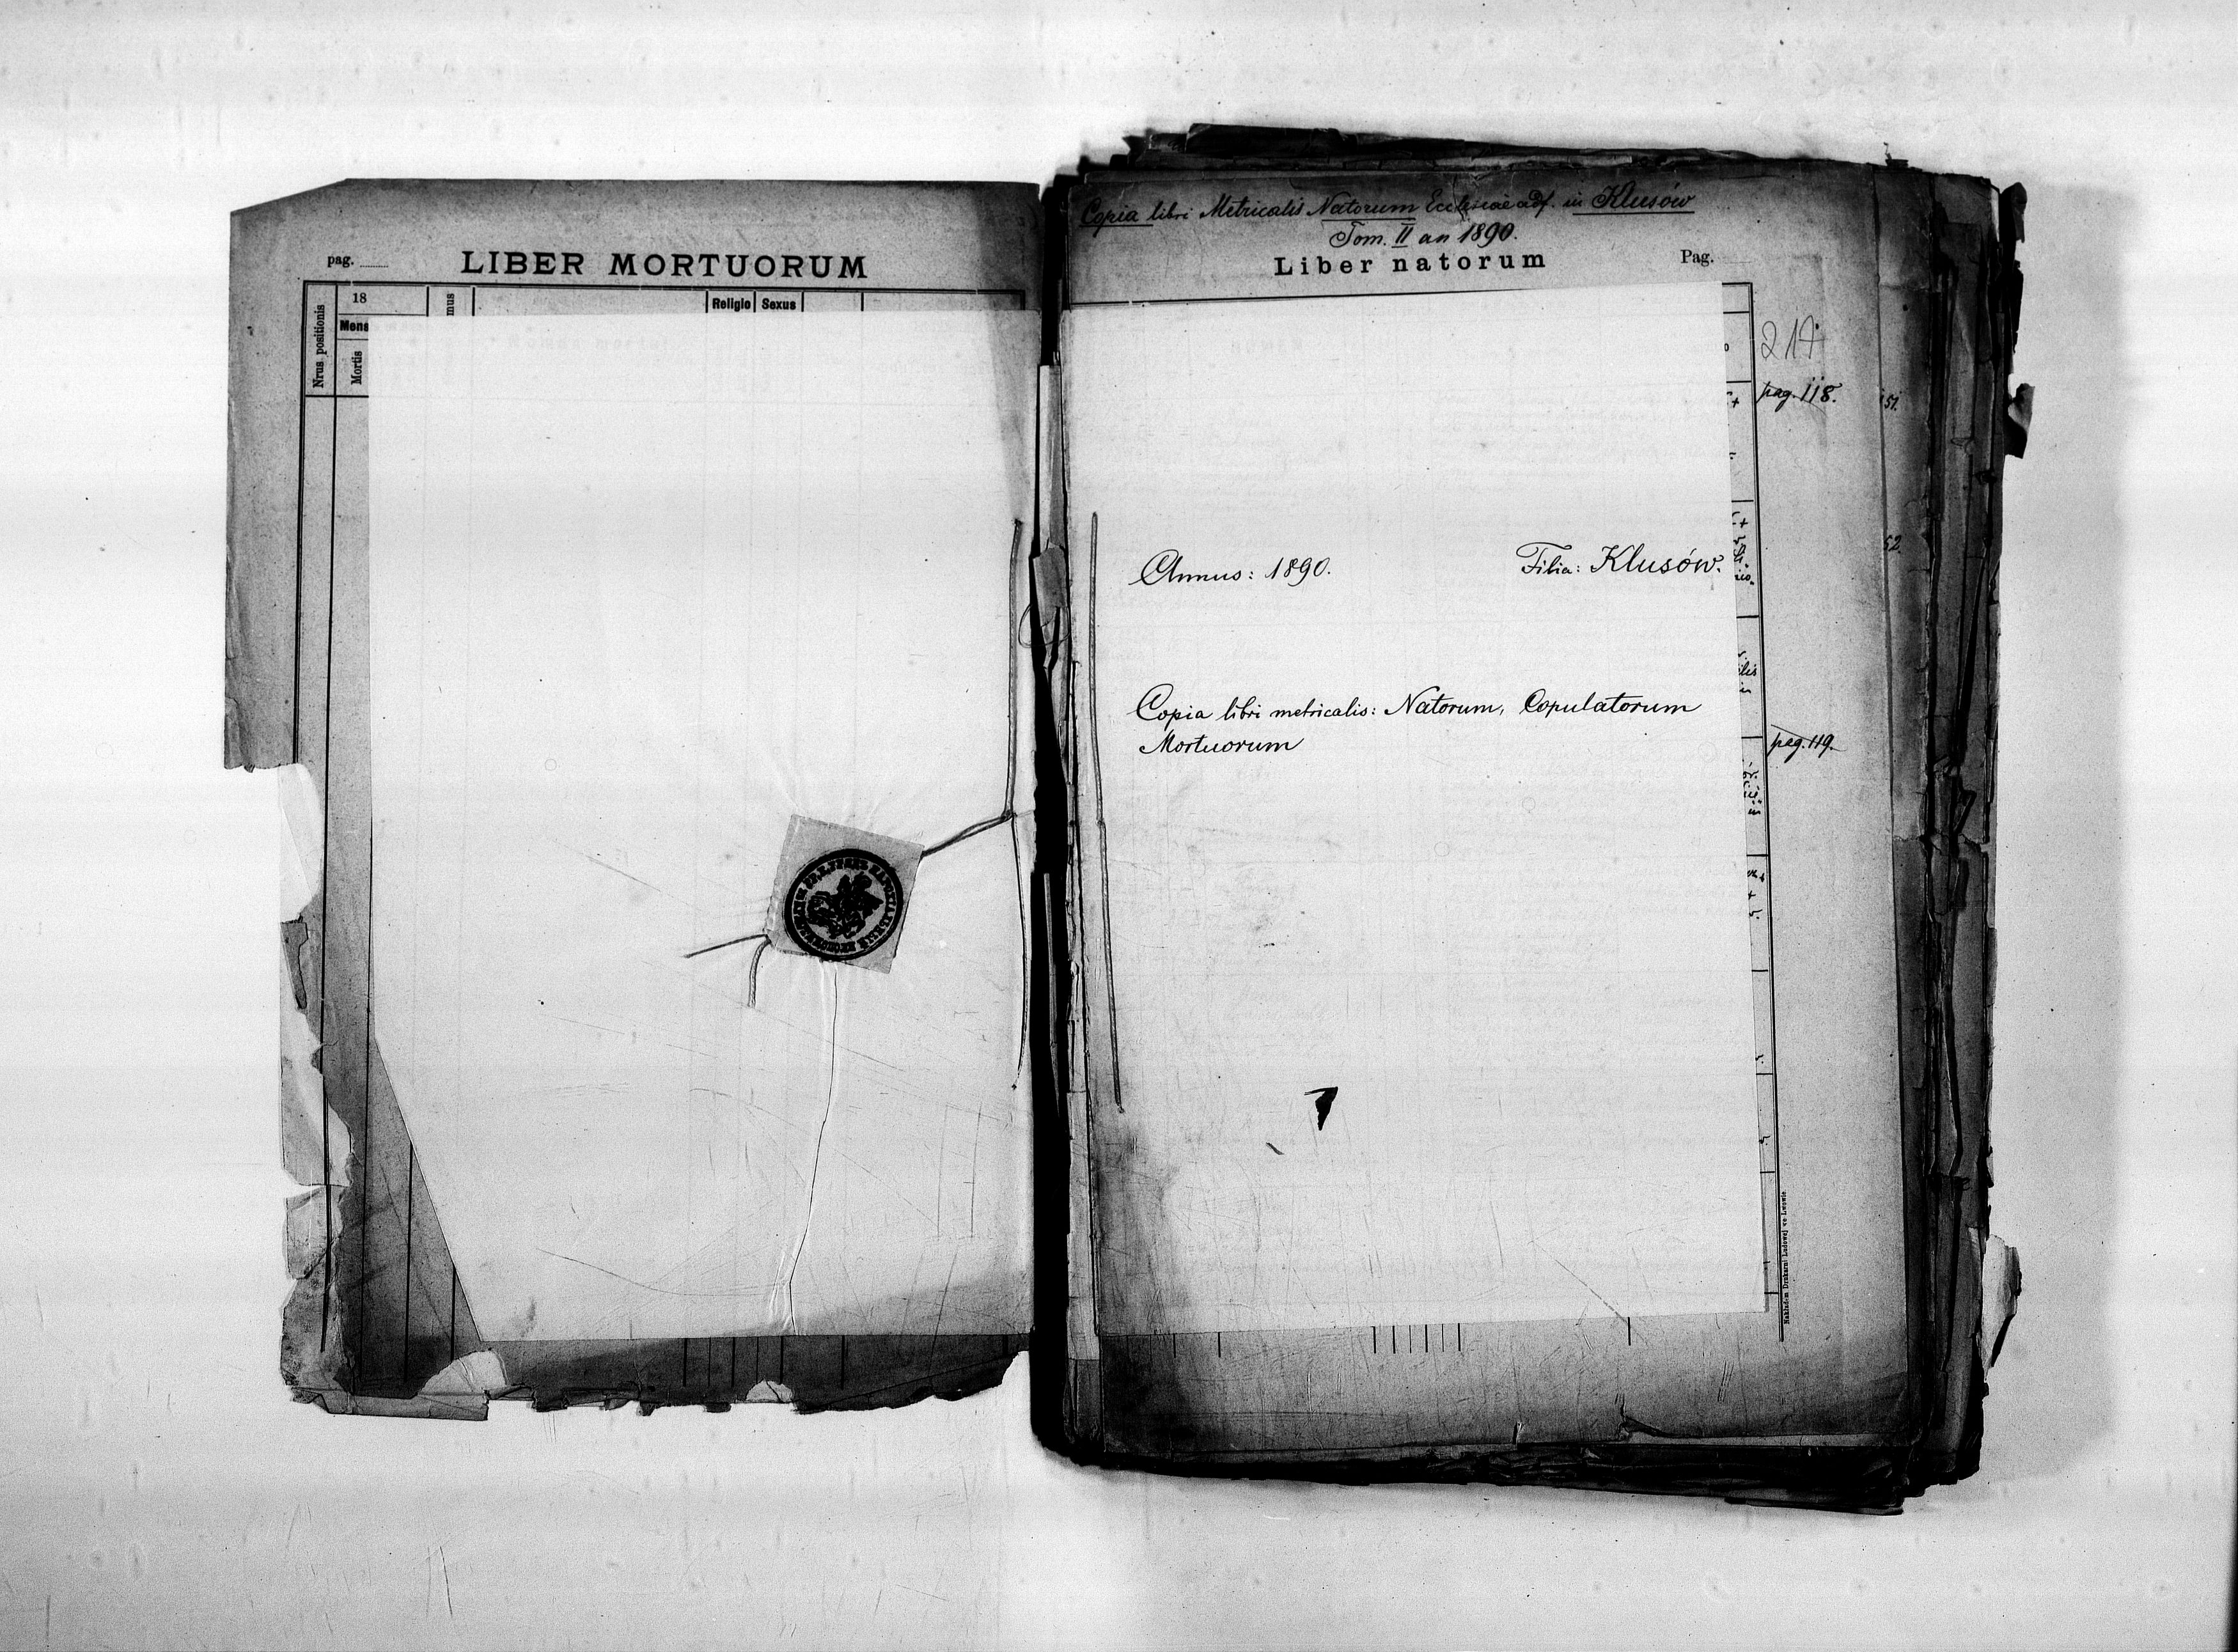 pag.
LIBER MORTUORUM
Nrus positionis
18
Mens
Mortis
mus
Religio
Sexus
Copia libri Metricalis Natorum Ecclesiae adf. in Klusów
Tom. II an 1890.
Liber natorum
Pag.
217
pag. 118.
151.
52.
Annus: 1890.
Filia: Klusów.
Copia libri metricalis: Natorum, Copulatorum
Mortuorum
pag. 119.
Nakładem Drukarni Ludowej we Lwowie